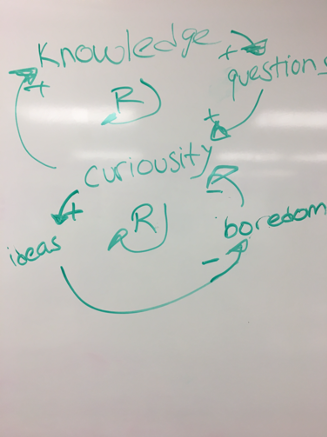 Knowledge
+
questions
+
R
+
curiousity
+
R
-
ideas
boredom
-